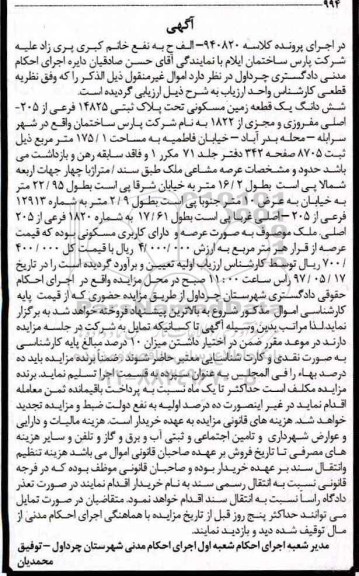 ۹۹۴
آگهی
در اجرای پرونده کلاسه ۹۴۰۸۲۰-الف ح به نفع خانم کبری پری زاد علیه
شرکت پارس ساختمان ایلام با نمایندگی آقای حسن صادقیان دایره اجرای احکام
مدنی دادگستری چرداول در نظر دارد اموال غیرمنقول ذیل الذکر را که وفق نظریه
قطعی کارشناس واحد ارزیاب به شرح ذیل ارزیابی گردیده است.
شش دانگ یک قطعه زمین مسکونی تحت پلاک ثبتی ۱۴۸۲۵ فرعی از ۲۰۵-
اصلی مفروزی و مجزی از ۱۸۲۲ به نام شرکت پارس ساختمان واقع در شهر
سرابله – محله بدر آباد – خیابان فاطمیه به مساحت ۱۷۵/۱ متر مربع ذیل
ثبت ۸۷۰۵ صفحه ۳۴۲ دفتر جلد ۷۱ مکرر ۱ و فاقد سابقه رهن و بازداشت می
باشد حدود و مشخصات عرصه مشاعی ملک طبق سند / متراژبا چهار جهات اربعه
شمالا پی است بطول ۱۶/۲ متر به خیابان شرقا پی است بطول ۲۲/۹۵ متر
به خیابان به عرض ۱۰ متر جنوبا پی است بطول ۲/۹ متر به شماره ۱۲۹۱۳
فرعی از ۲۰۵- اصلی غربا پی است بطول ۱۷/۶۱ به شماره ۱۸۲۰ فرعی از ۲۰۵
اصلی ملک موصوف به صورت عرصه و دارای کاربری مسکونی بوده که قیمت
عرصه از قرار هر متر مربع به ارزش ۴/۰۰۰/۰۰۰ ریال با قیمت کل ۴۰۰/۰۰۰
/۷۰۰ ریال توسط کارشناس ارزیاب اولیه تعیین و برآورد گردیده است را در تاریخ
۹۷/۰۵/۱۷ راس ساعت ۱۱:۰۰ صبح در محل مزایده واقع در اجرای احکام
حقوقی دادگستری شهرستان چرداول از طریق مزایده حضوری که از قیمت پایه
کارشناسی اموال مذکور شروع به بالاترین پیشنهاد فروخته خواهد شد به برگزار
نماید لذا مراتب بدین وسیله آگهی تا کسانیکه تمایل به شرکت در جلسه مزایده
دارند در موعد مقرر ضمن در اختیار داشتن میزان ۱۰ درصد مبالغ پایه کارشناسی
به صورت نقدی و کارت شناسایی معتبر حاضر شوند. ضمنا برنده مزایده باید ده
درصد بهاء را فی المجلس به عنوان سپرده به قسمت اجرا تسلیم نماید. برنده
مزایده مکلف است حداکثر تا یک ماه نسبت به پرداخت باقیمانده ثمن معامله
اقدام نماید در غیر اینصورت ده درصد اولیه به نفع دولت ضبط و مزایده تجدید
خواهد شد. هزینه های قانونی مزایده به عهده خریدار است. هزینه مالیات و دارایی
و عوارض شهرداری و تامین اجتماعی و ثبتی آب و برق و گاز و تلفن و سایر هزینه
های مصرفی تا تاریخ فروش بر عهده صاحبان قانونی اموال می باشد هزینه تنظیم
وانتقال سند بر عهده خریدار بوده و صاحبان قانونی موظف بوده که در فرجه
قانونی نسبت به انتقال رسمی سند به نام خریدار اقدام نمایند در صورت تعذر
دادگاه راسا نسبت به انتقال سند اقدام خواهد نمود. متقاضیان در صورت تمایل
می توانند حداکثر پنج روز قبل از تاریخ مزایده با هماهنگی اجرای احکام مدنی از
مال توقیف شده دید و بازدید نمایند.
مدیر شعبه اجرای احکام شعبه اول اجرای احکام مدنی شهرستان چرداول – توفیق
محمدیان